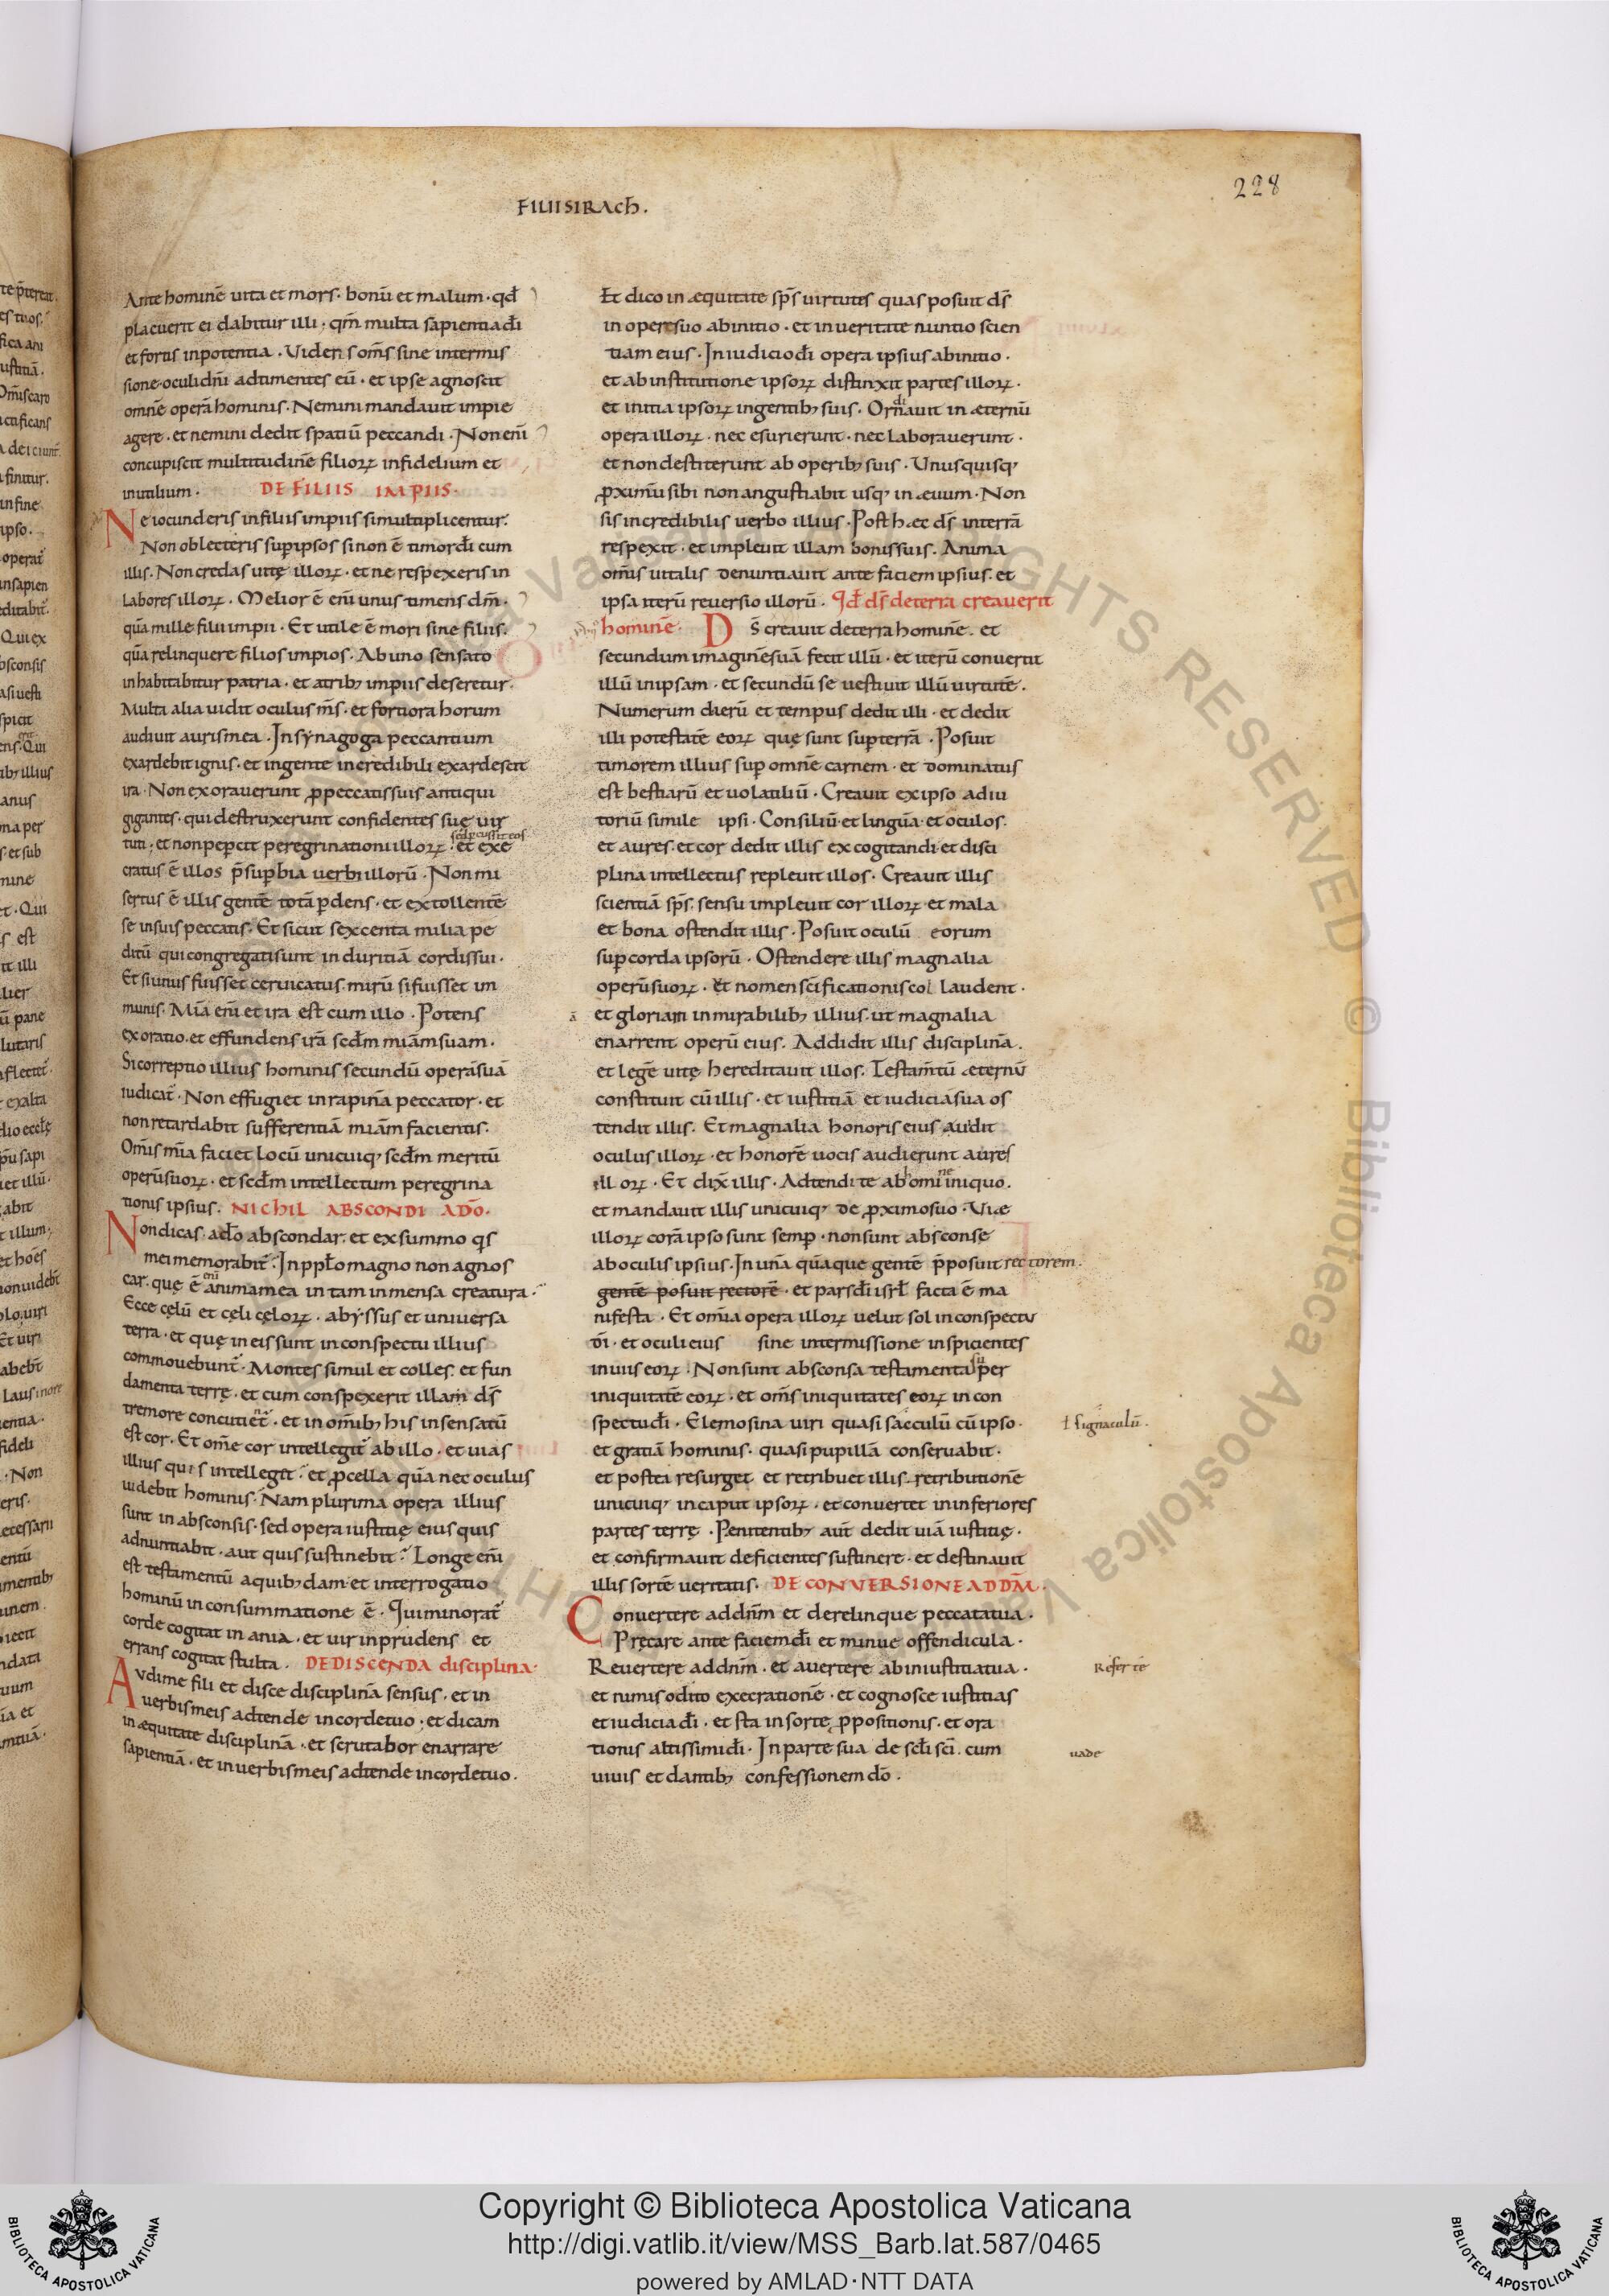 228
FILII SIRACH.
Ante hominē uita et mors· bonū et malum· qđ
placuerit ei dabitur illi· qm̄ multa sapientia đi
et fortis in potentia· Videns om̄s sine intermis
sione· oculi dn̄i ad timentes eū· et ipse agnoscit
omnē operā hominis· Nemini mandauit impie
agere· et nemini dedit spatiū peccandi· Non eni
concupiscit multitudinē filioꝝ infidelium et
inutilium· DE FILIIS IMPIIS·
Ne iocunderis in filiis impiis si multiplicentur·
Non oblecteris sup ipsos si non ē timor đi cum
illis· Non credas uitę illoꝝ· et ne respexeris in
labores illoꝝ· Melior ē eni unus timens dm̄·
quā mille filii impii· Et utile ē mori sine filiis·
quā relinquere filios impios· Ab uno sensato
inhabitabitur patria· et a trib; impiis deseretur·
Multa alia uidit oculus m̄s· et fortiora horum
audiuit auris mea· In synagoga peccantium
exardebit ignis· et in gente incredibili exardescit
ira· Non exorauerunt ꝓ peccatis suis antiqui
gigantes· qui destruxerunt confidentes suę uir
tuti· et non pepercit peregrinationi illoꝝ· et exe
cratus ē illos p̄ supbia uerbi illorū· Non mi
sertus ē illis gentē totā pdens· et extollentē
se in suis peccatis· Et sicut sexcenta milia pe
ditū qui congregati sunt in duritiā cordis sui·
Et si unus fuisset ceruicatus· mirū si fuisset im
munis· Mīa eni et ira est cum illo· Potens
exoratio· et effundens irā scđm miām suam·
Sic correptio illius hominis secundū operā suā
iudicat· Non effugiet in rapinā peccator· et
non retardabit sufferentiā miām facientis·
Om̄is mīa faciet locū unicuiq; scđm meritū
operū suoꝝ· et scđm intellectum peregrina
tionis ipsius· NICHIL ABSCONDI A DŌ·
Non dicas· a đo abscondar· et ex summo qs
mei memorabit· In pplo magno non agnos
car· que ē eni anima mea in tam inmensa creatura·
Ecce cęlū et cęli cęloꝝ· abyssus et uniuersa
terra· et quę in eis sunt in conspectu illius
commouebunt· Montes simul et colles· et fun
damenta terrę· et cum conspexerit illam ds̄
tremore concutient· et in omīb; his insensatū
est cor· Et om̄e cor intellegit ab illo· et uias
illius quis intellegit· et ꝓcella quā nec oculus
uidebit hominis· Nam plurima opera illius
sunt in absconsis· sed opera iustitię eius quis
adnuntiabit· aut quis sustinebit· Longe eni
est testamentū a quib; dam· et interrogatio
hominū in consummatione ē· Qui minorat
corde cogitat inania· et uir inprudens et
errans cogitat stulta· DE DISCENDA disciplina·
Audi me fili et disce disciplinā sensus· et in
uerbis meis adtende in corde tuo· et dicam
in æquitate disciplinā· et scrutabor enarrare
sapientiā· et in uerbis meis adtende in corde tuo·
Et dico in æquitate sp̄s uirtutes quas posuit ds̄
in opere suo ab initio· et in ueritate nuntio scien
tiam eius· In iudicio đi opera ipsius ab initio·
et ab institutione ipsoꝝ distinxit partes illoꝝ·
et initia ipsoꝝ in gentib; suis· Ordinauit in æternū
opera illoꝝ· nec esurierunt· nec laborauerunt·
et non destiterunt ab operib; suis· Unusquisq;
ꝓximū sibi non angustiabit usq; in æuum· Non
sis incredibilis uerbo illius· Post hæc ds̄ in terrā
respexit· et impleuit illam bonis suis· Anima
om̄is uitalis denuntiauit ante faciem ipsius· et
ipsa iterū reuersio illorū· Qđ ds̄ de terra creauerit
hominē· Ds̄ creauit de terra hominē· et
secundum imaginē suā fecit illū· et iterū conuertit
illū in ipsam· et secundū se uestiuit illū uirtutē·
Numerum dierū et tempus dedit illi· et dedit
illi potestatē eoꝝ quę sunt sup terrā· Posuit
timorem illius sup omnē carnem· et dominatus
est bestiarū et uolatiliū· Creauit ex ipso adiu
toriū simile ipsi· Consiliū· et linguā· et oculos·
et aures· et cor dedit illis excogitandi· et disci
plina intellectus repleuit illos· Creauit illis
scientiā sp̄s· sensu impleuit cor illoꝝ· et mala
et bona ostendit illis· Posuit oculū eorum
sup corda ipsorū· Ostendere illis magnalia
operū suoꝝ· et nomen scīficationis col laudent·
et gloriam in mirabilib; illius· ut magnalia
enarrent operū eius· Addidit illis disciplinā·
et legē uitę hereditauit illos· Testam̄tū æternū
constituit cū illis· et iustitiā et iudicia sua os
tendit illis· Et magnalia honoris eius audit
oculus illoꝝ· et honorē uocis audierunt aures
illoꝝ· Et dix̄ illis· Adtendite ab homine iniquo·
et mandauit illis unicuiq; de ꝓximo suo· Viæ
illoꝝ corā ipso sunt semp· non sunt absconse
ab oculis ipsius· In unā quāque gentē p̄posuit rectorem·
gentē posuit rectorē· et pars đi isrl facta ē ma
nifesta· Et omīa opera illoꝝ uelut sol in conspectu
đi· et oculi eius sine intermissione inspicientes
in uiis eoꝝ· Non sunt absconsa testamenta super
iniquitatē eoꝝ· et om̄s iniquitates eoꝝ in con
spectu đi· Elemosina uiri quasi sacculū cū ipso· ł signaculū·
et gratiā hominis· quasi pupillā conseruabit·
et postea resurget et retribuet illis· retributionē
unicuiq; in caput ipsoꝝ· et conuertet in inferiores
partes terrę· Penitentib; aut dedit uiā iustitię·
et confirmauit deficientes sustinere· et destinauit
illis sortē ueritatis· DE CONVERSIONE AD DM̄·
Conuertere ad dn̄m et derelinque peccata tua·
Precare ante faciem đi et minue offendicula·
Reuertere ad dn̄m· et auertere ab iniustitia tua·
et nimis odito execrationē· et cognosce iustitias
et iudicia đi· et sta in sorte ꝓpositionis· et ora
tionis altissimi đi· In parte sua de scłi sci· cum uade
uiuis et dantib; confessionem dō·
Copyright © Biblioteca Apostolica Vaticana
http://digi.vatlib.it/view/MSS_Barb.lat.587/0465
powered by AMLAD·NTT DATA